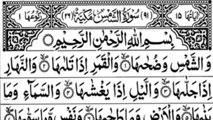 اٰيَاتُهَا ١٥ (٩١) سُوْرَةُ الشَّمْسِ مَكِّيَّةٌ (٢٦) رُكُوْعُهَا ١
بِسْمِ اللّٰهِ الرَّحْمٰنِ الرَّحِيْمِ
وَالشَّمْسِ وَضُحٰىهَا ۙ وَالْقَمَرِ اِذَا تَلٰىهَا ۙ وَالنَّهَارِ
اِذَا جَلّٰىهَا ۙ وَالَّيْلِ اِذَا يَغْشٰىهَا ۙ وَالسَّمَآءِ وَمَا
بَنٰىهَا ۙ وَالْاَرْضِ وَمَا طَحٰىهَا ۙ وَنَفْسٍ وَّمَا سَوّٰىهَا